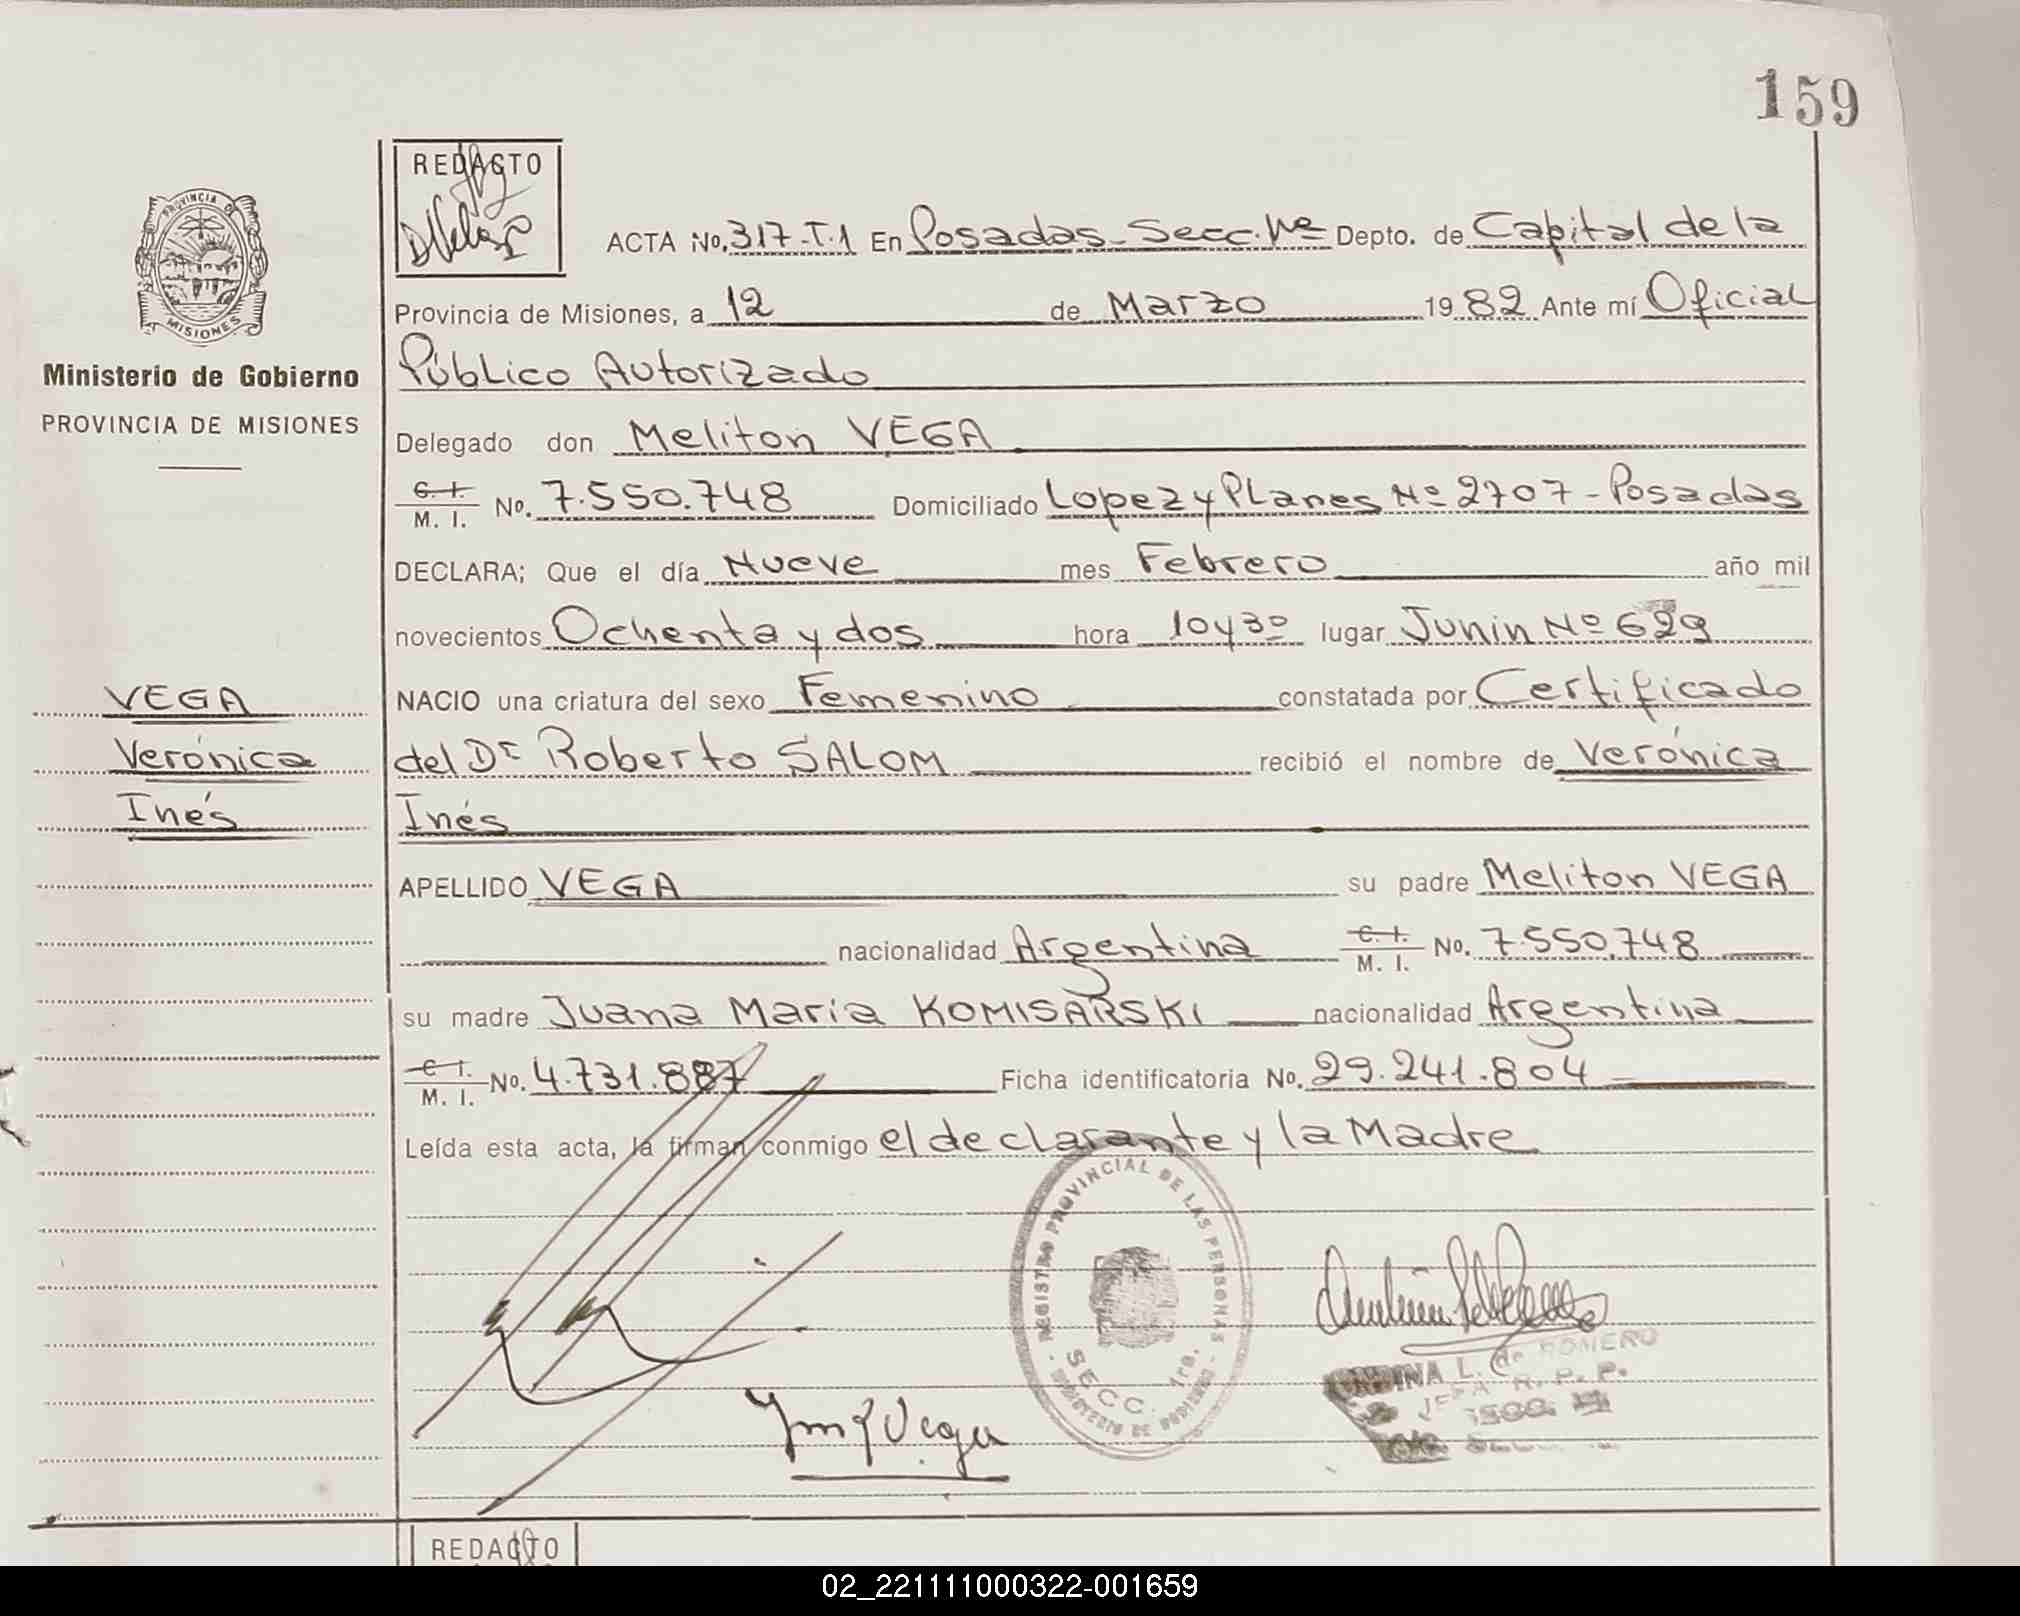 159
REDACTO
ACTA No. 317-T.1 En Posadas - Secc. 1ra Depto. de Capital de la
Provincia de Misiones, a 12 de Marzo 1982 Ante mí Oficial
Público Autorizado
PROVINCIA DE
MISIONES
Ministerio de Gobierno
PROVINCIA DE MISIONES
Delegado don Meliton VEGA
C. I.
M. I. No. 7.550.748 Domiciliado Lopez y Planes Nº 2707 - Posadas
DECLARA; Que el día Nueve mes Febrero año mil
novecientos Ochenta y dos hora 10 y 30 lugar Junin Nº 629
VEGA
Verónica
Inés
NACIO una criatura del sexo Femenino constatada por Certificado
del Dr Roberto SALOM recibió el nombre de Verónica
Inés
APELLIDO VEGA su padre Meliton VEGA
nacionalidad Argentina C. I.
M. I. No. 7.550.748
su madre Juana Maria KOMISARSKI nacionalidad Argentina
C. I.
M. I. No. 4.731.887 Ficha identificatoria No. 29.241.804
Leída esta acta, la firman conmigo el declarante y la Madre
REGISTRO PROVINCIAL DE LAS PERSONAS
SECC. 1ra.
MINISTERIO DE GOBIERNO
Vega
L. de ROMERO
JEFA R. P. P.
REDACTO
02_221111000322-001659